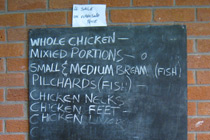 WHOLE CHICKEN —
MIXIED PORTIONS —
SMALL & MEDIUM BREAM (FISH)
PILCHARDS (FISH) —
CHICKEN NECKS
CHICKEN FEET
CHICKEN